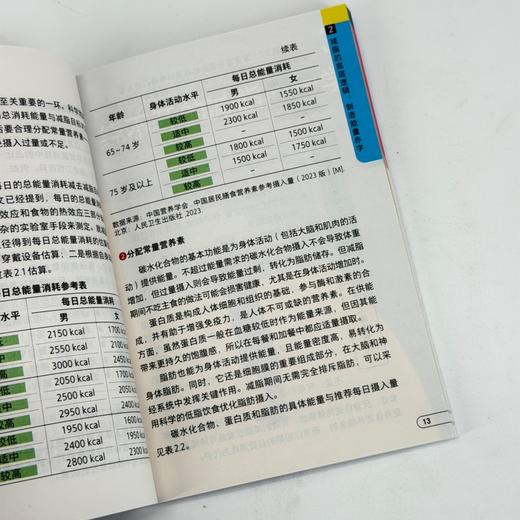 至关重要的一环。科学
总消耗能量与减脂目标
后要合理分配常量营养
摄入过量或不足。
每日的总能量消耗减去减脂
文已经提到,每日的总能量
效应和食物的热效应三部分
杂的实验室手段来测定。我
径得到每日总能量消耗估
穿戴设备估算;二是根据自
表2.1估算。
每日总能量消耗参考表
水平
每日总能量消耗
男
女
2150 kcal
1700 kcal
中
2550 kcal
2100
高
3000 kcal
2450
低
2050 kcal
1700
中
2500 kcal
高
2950 kcal
低
1950 kcal
1600
适中
2400 kcal
1950
较高
2800 kcal
2300 kcal
续表
年龄
身体活动水平
每日总能量消耗
男
女
65~74 岁
较低
1900 kcal
1550 kcal
适中
2300 kcal
1850 kcal
较高
–
–
75 岁及以上
较低
1800 kcal
1500 kcal
适中
1500 kcal
1750 kcal
较高
–
–
数据来源:中国营养学会. 中国居民膳食营养素参考摄入量(2023 版)[M].
北京:人民卫生出版社 2023.
2 分配常量营养素
碳水化合物的基本功能是为身体活动(包括大脑和肌肉的活
动)提供能量。不超过能量需求的碳水化合物摄入不会导致体重
增加,但过量摄入则会导致能量过剩,转化为脂肪储存。但减脂
期间不吃主食的做法可能会损害健康,尤其是在身体活动增加时。
蛋白质是构成人体细胞和组织的基础,参与酶和激素的合
成,并有助于增强免疫力,是人体不可或缺的营养素。在供能
方面,虽然蛋白质一般在血糖较低时作为能量来源,但因其能
带来更持久的饱腹感,所以在每餐和加餐中都应适量摄取。
脂肪也能为身体活动提供能量,且能量密度高,易转化为
身体脂肪。同时,它还是细胞膜的重要组成部分,在大脑和神
经系统中发挥关键作用。减脂期间无需完全排斥脂肪,可以采
用科学的低脂饮食优化脂肪摄入。
碳水化合物、蛋白质和脂肪的具体能量与推荐每日摄入量
见表2.2。
2
减脂的底层逻辑:制造能量赤字
13